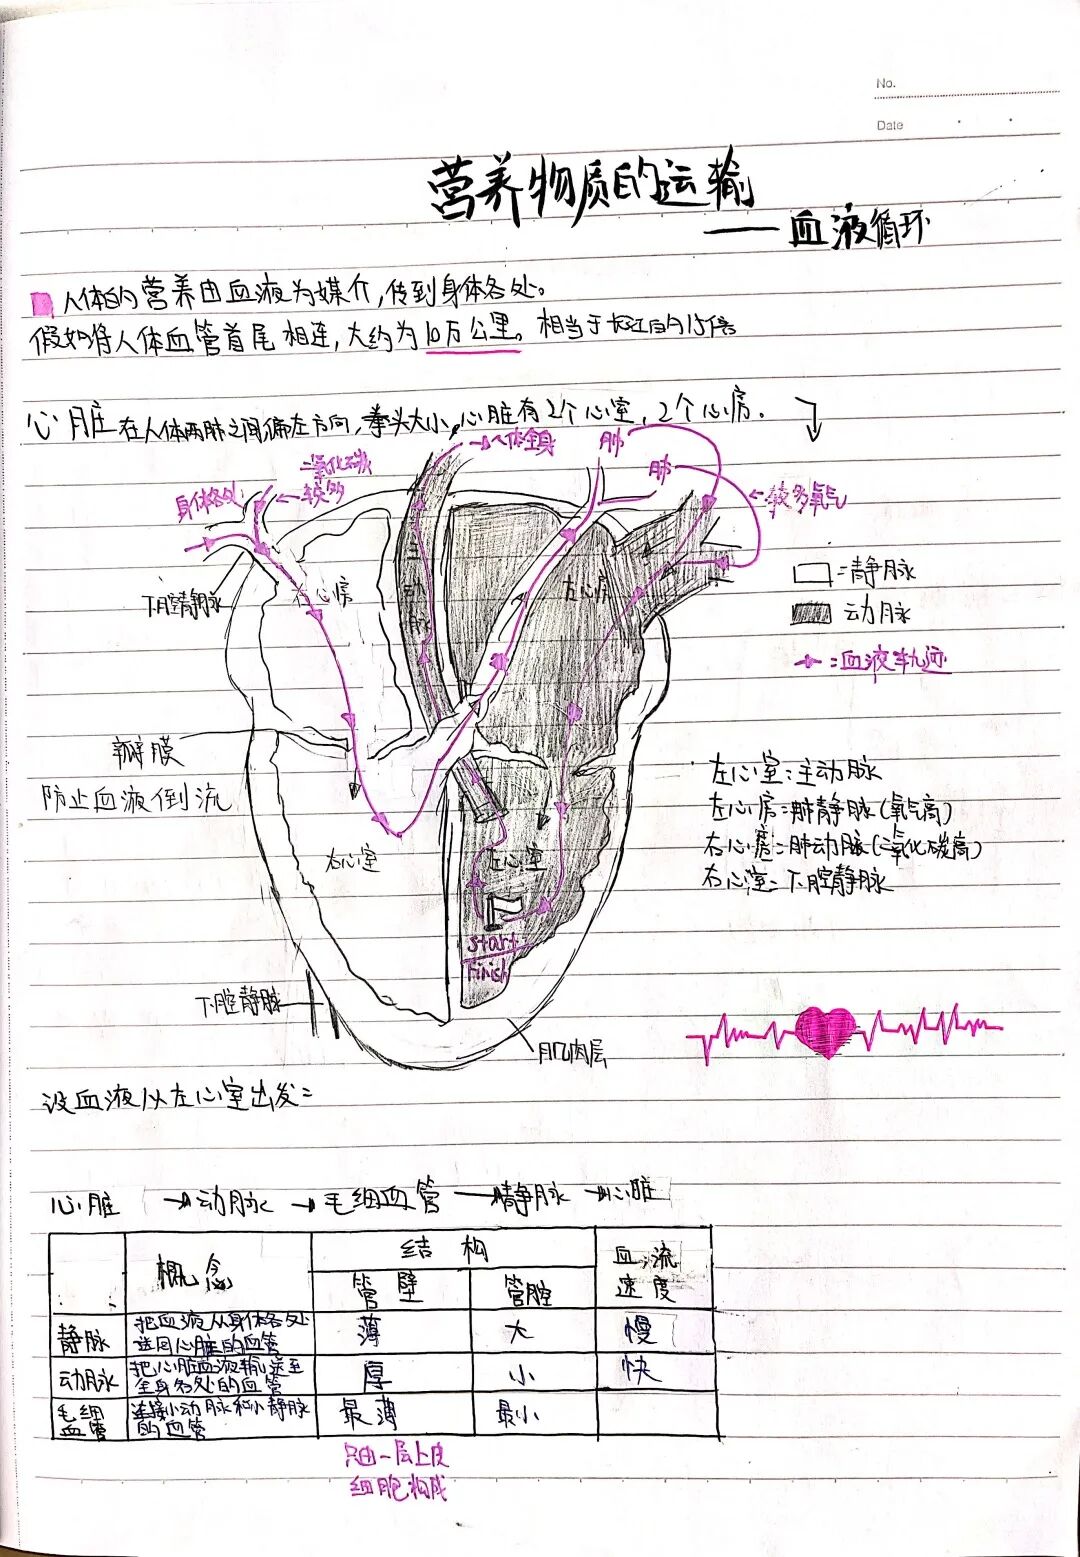 No.
Date
营养物质的运输
——血液循环
人体的营养由血液为媒介,传到身体各处。
假如将人体血管首尾相连,大约为10万公里。相当于长江的15倍
心脏在人体两肺之间偏左方向,拳头大小,心脏有2个心室,2个心房。
→人体全身
肺
肺
二氧化碳
←较多
身体各处
←较多氧气
主动脉
下腔静脉
右心房
左心房
□:静脉
动脉
→:血液轨迹
瓣膜
防止血液倒流
左心室:主动脉
左心房:肺静脉(氧气高)
右心房:肺动脉(二氧化碳高)
右心室:下腔静脉
右心室
左心室
start
finish
下腔静脉
肌肉层
设血液从左心室出发:
心脏→动脉→毛细血管→静脉→心脏
概念 结构 血流速度
管壁 管腔
静脉 把血液从身体各处送回心脏的血管 薄 大 慢
动脉 把心脏血液输送至全身各处的血管 厚 小 快
毛细血管 连接小动脉和小静脉的血管 最薄 最小
只由一层上皮
细胞构成